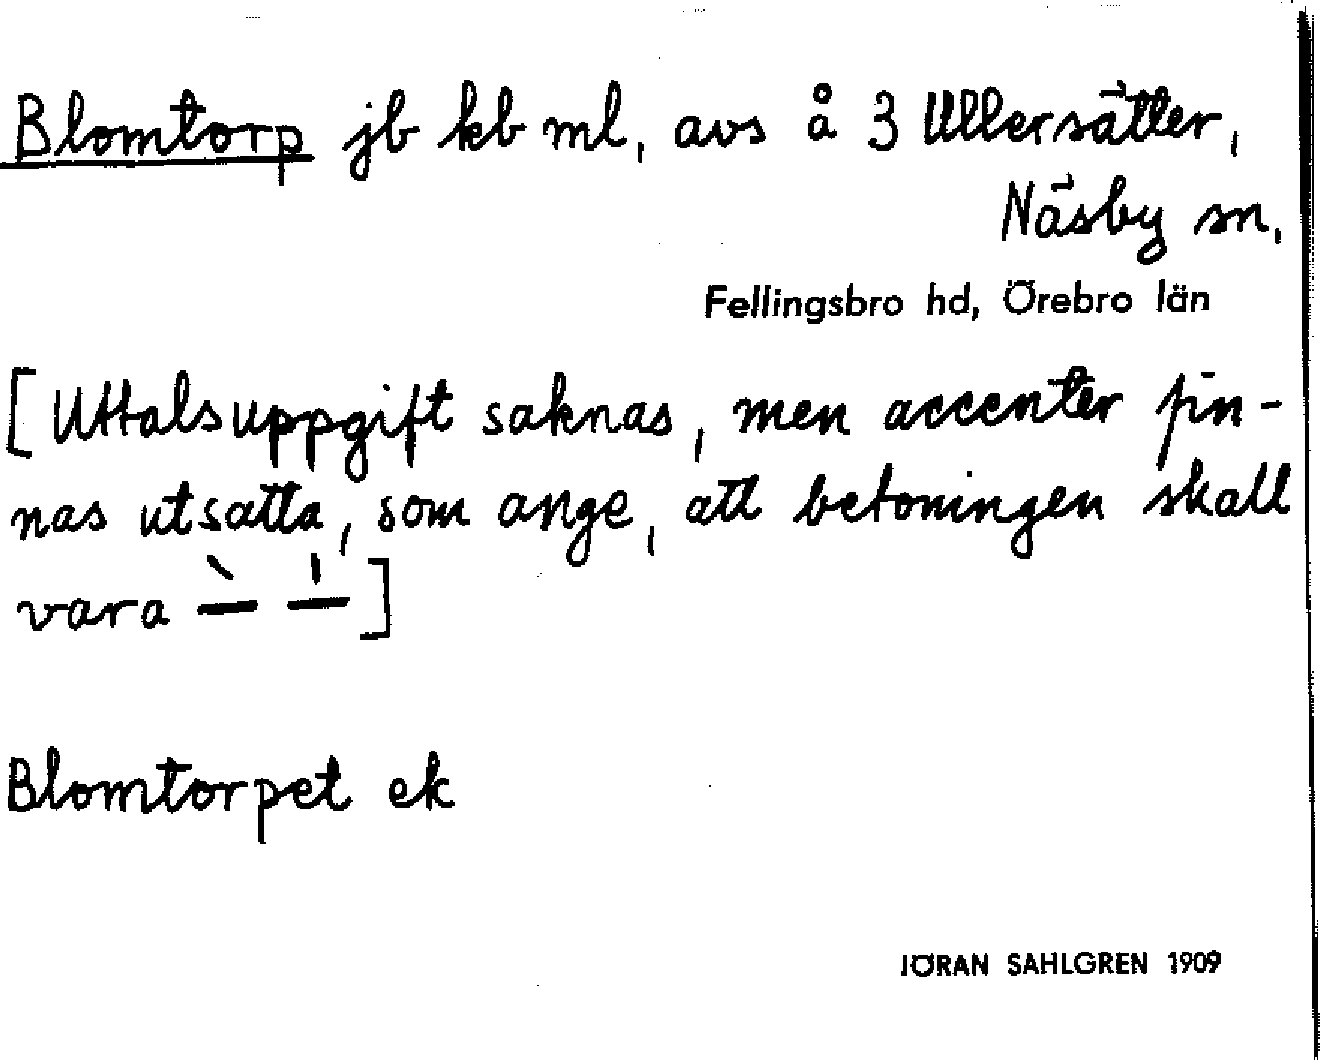 Blomtorp jb kb ml, avs å 3 Ullersätter,
Näsby sn,
Fellingsbro hd, Örebro län
[Uttalsuppgift saknas, men accenter fin-
nas utsatta, som ange, att betoningen skall
vara – –]
Blomtorpet ek
JÖRAN SAHLGREN 1909